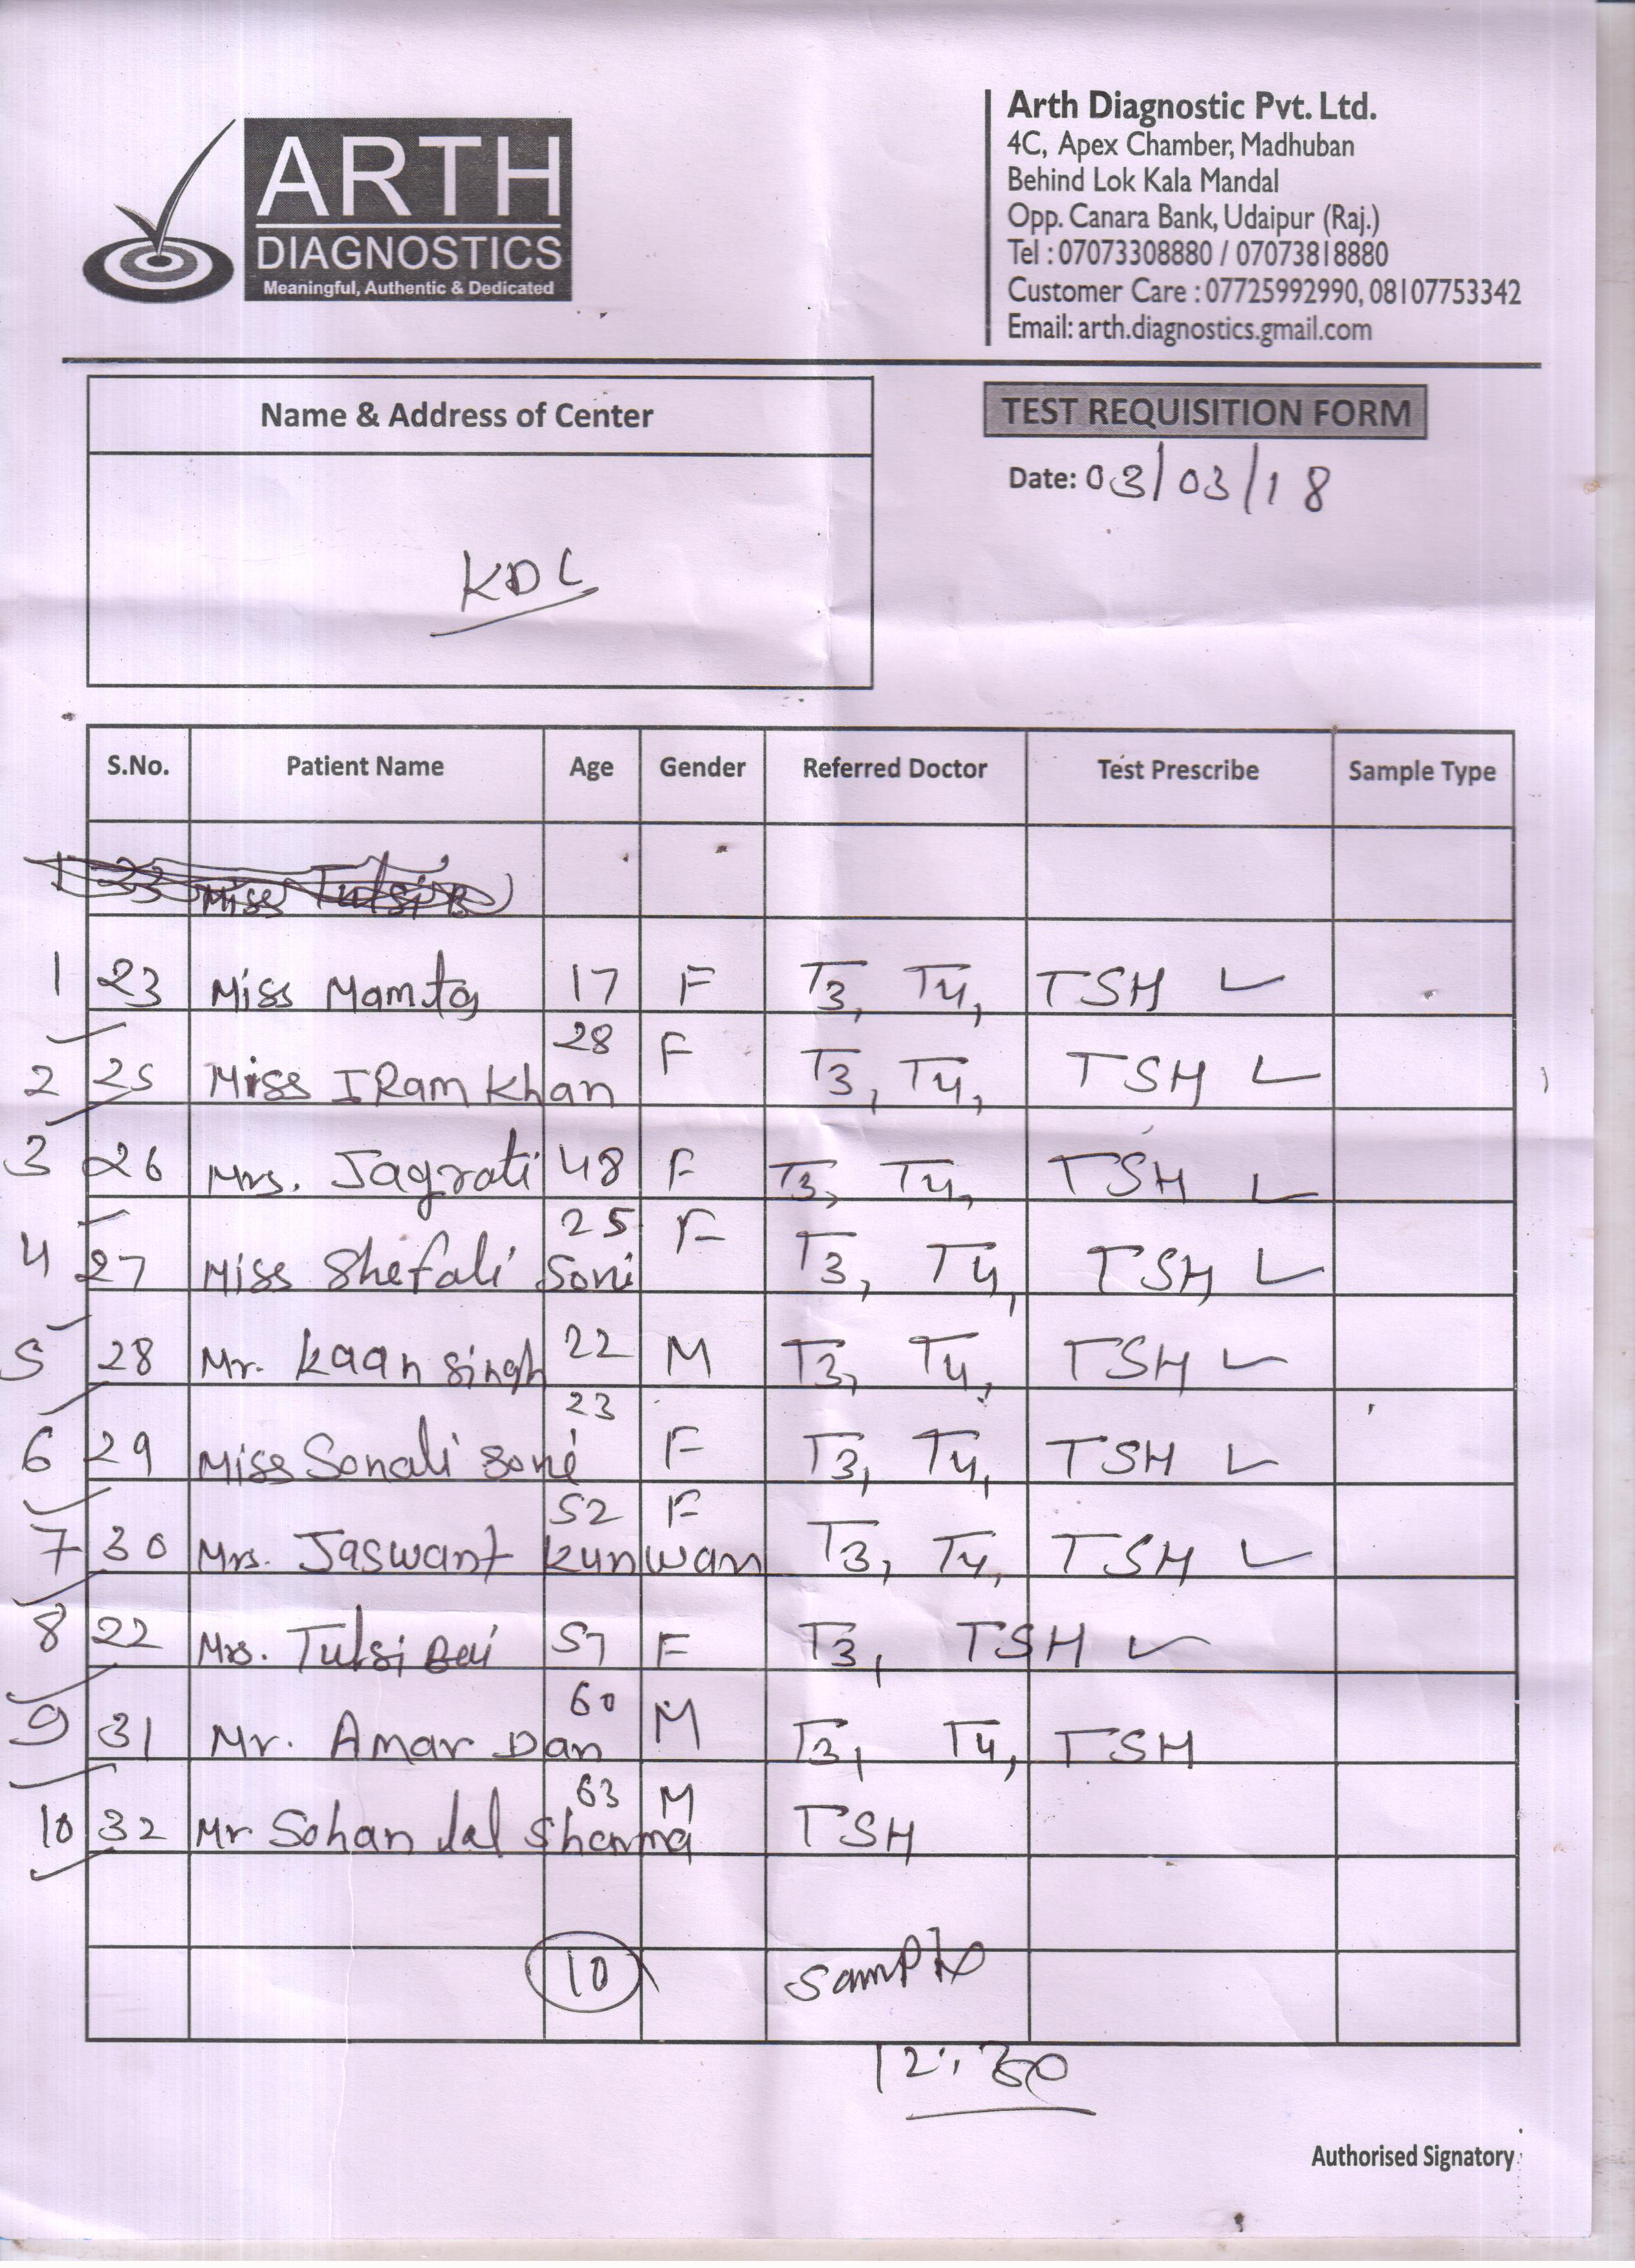 ARTH
DIAGNOSTICS
Meaningful, Authentic & Dedicated
Arth Diagnostic Pvt. Ltd.
4C, Apex Chamber, Madhuban
Behind Lok Kala Mandal
Opp. Canara Bank, Udaipur (Raj.)
Tel : 07073308880 / 07073818880
Customer Care : 07725992990, 08107753342
Email: arth.diagnostics.gmail.com
Name & Address of Center
TEST REQUISITION FORM
Date: 03/03/18
KDC
S.No. Patient Name Age Gender Referred Doctor Test Prescribe Sample Type
1 23 Miss Tulsi
1 23 Miss Mamta 17 F T3, T4, TSH ✓
2 25 Miss IRam Khan 28 F T3, T4, TSH ✓
3 26 Mrs. Jagrati 48 F T3, T4, TSH ✓
4 27 Miss Shefali Soni 25 F T3, T4, TSH ✓
5 28 Mr. Kaan Singh 22 M T3, T4, TSH ✓
6 29 Miss Sonali Soni 23 F T3, T4, TSH ✓
7 30 Mrs. Jaswant Kunwan 52 F T3, T4, TSH ✓
8 22 Mrs. Tulsi Bai 57 F T3, TSH ✓
9 31 Mr. Amar Dan 60 M T3, T4, TSH
10 32 Mr Sohan lal Sharma 63 M TSH
10 Sample
12:30
Authorised Signatory